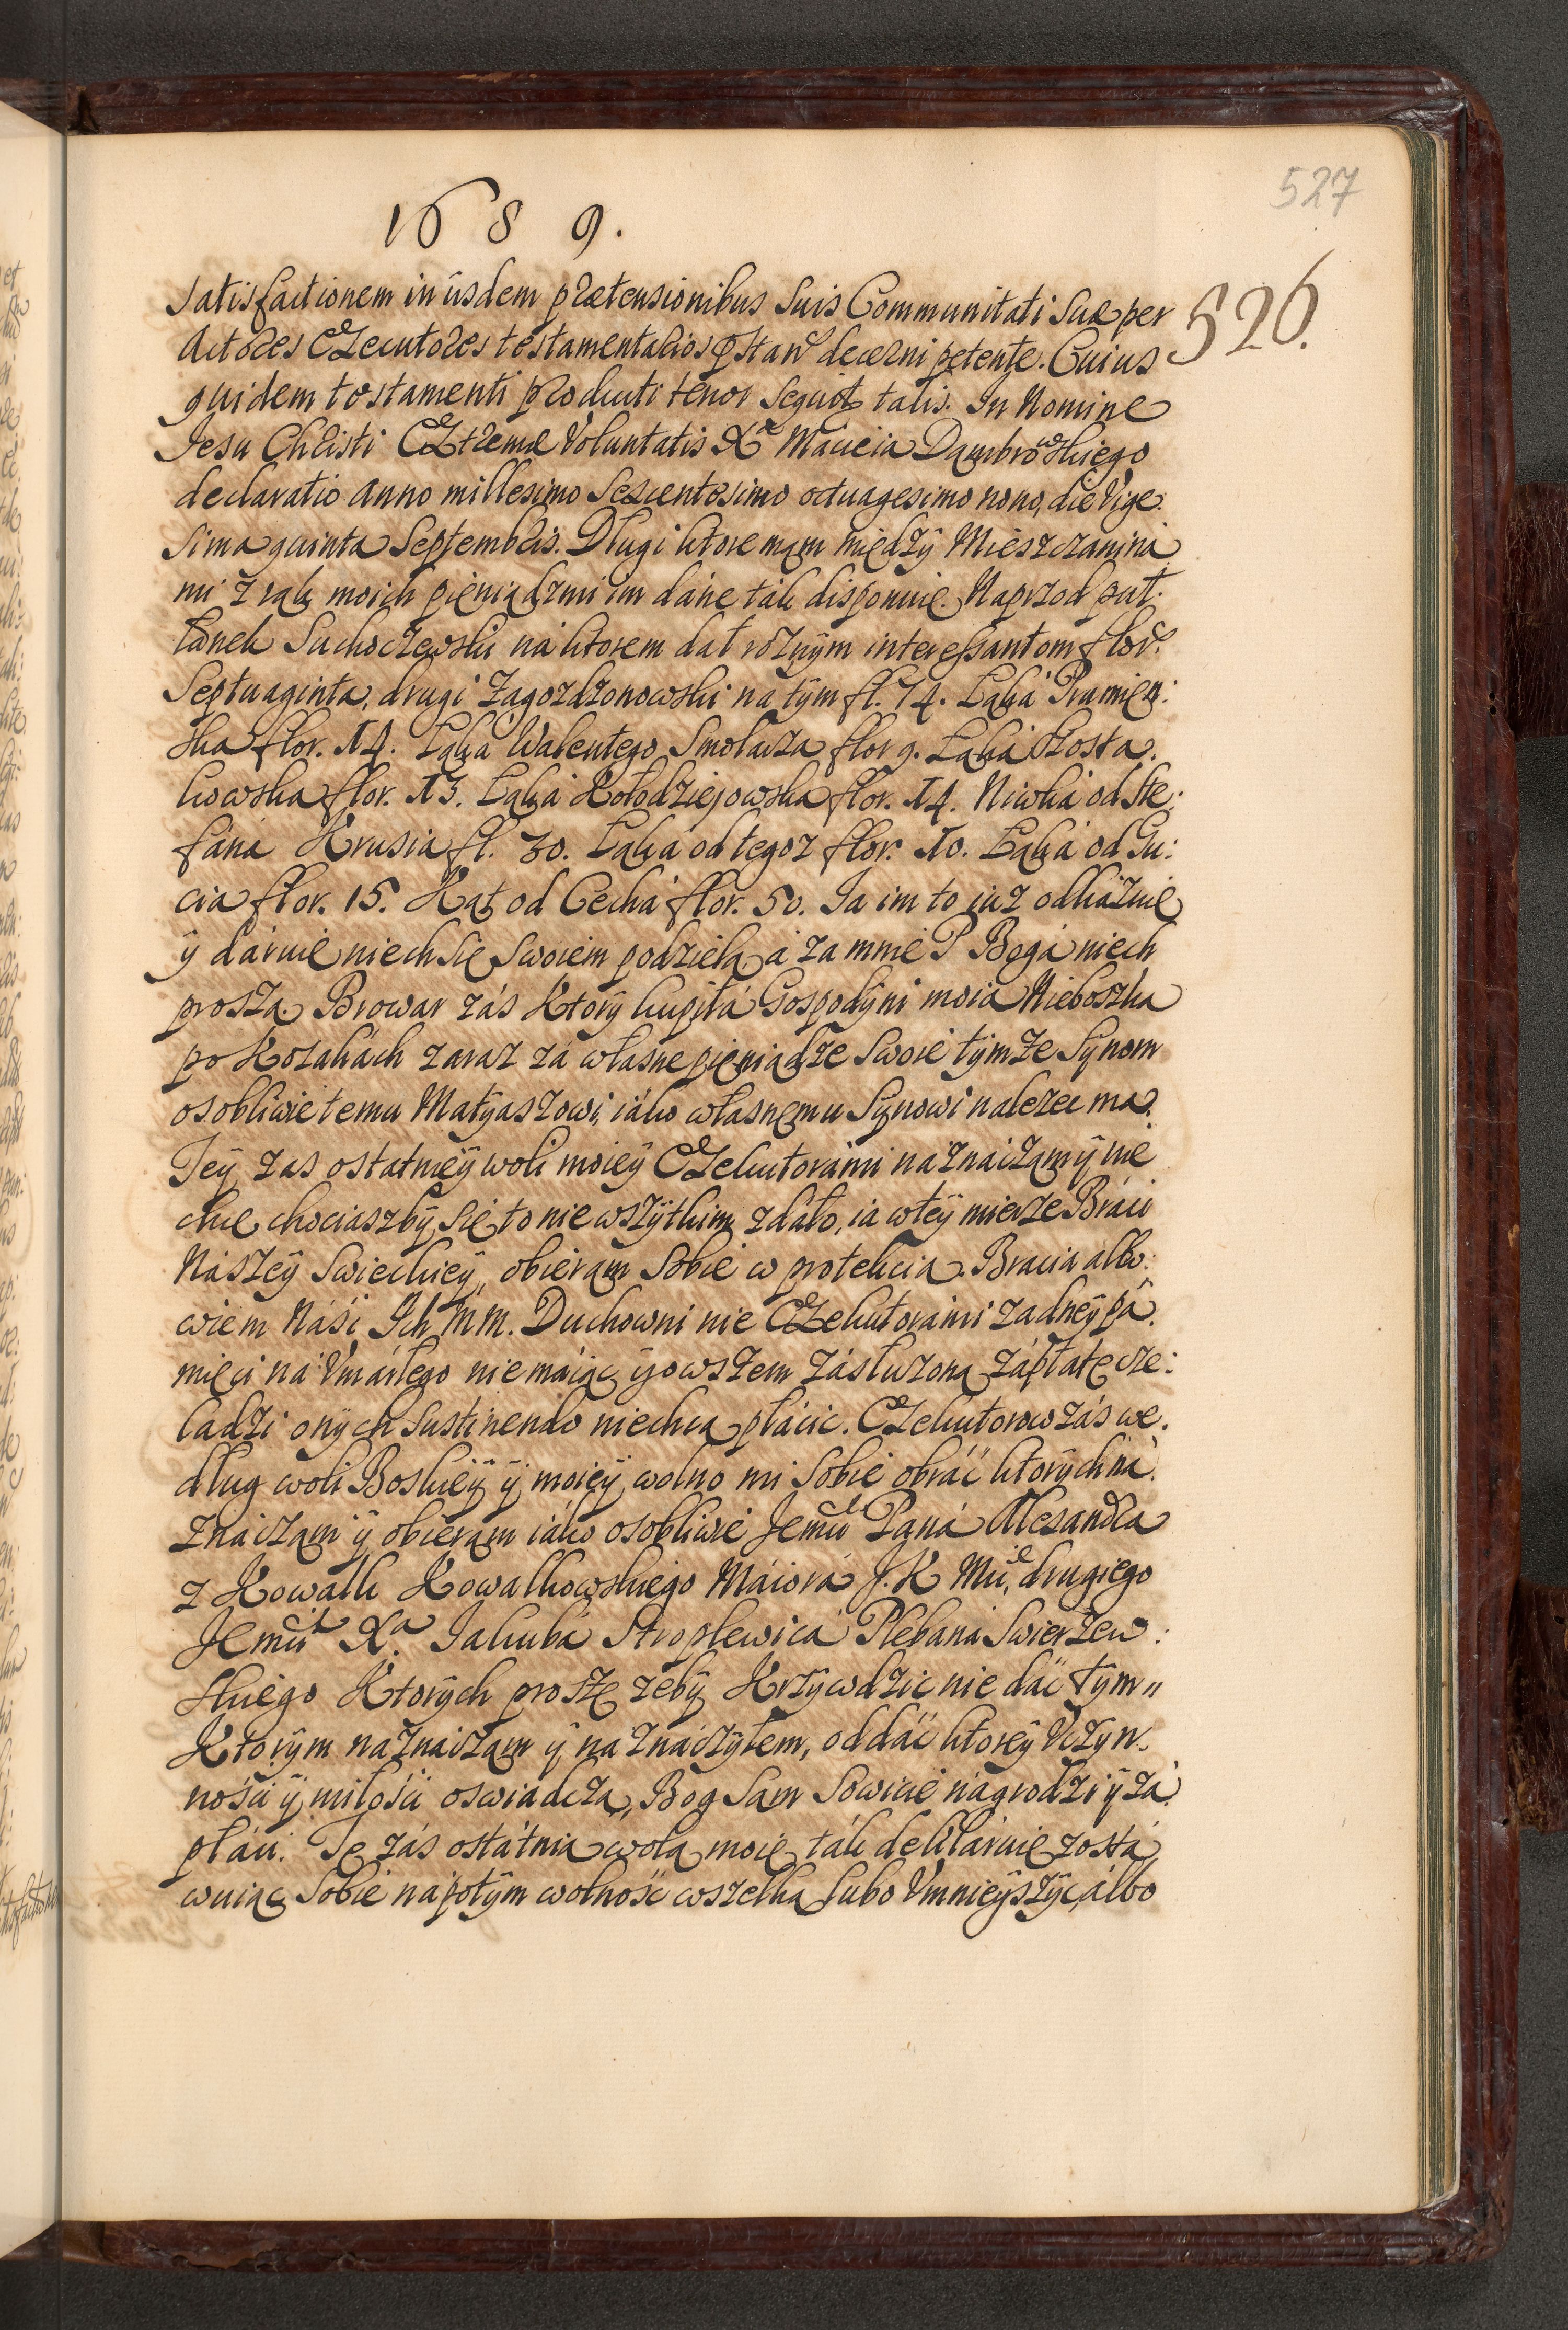 527
1689.
526.
satisfactionem in iisdem prætensionibus suis Communitati suæ per
Actores Executores testamentarios præstari decerni petente. Cuius
quidem testamenti producti tenor sequit talis. In Nomine
Jesu Christi Extremæ Voluntatis Xa Macieia Dąmbrowskiego
declaratio Anno millesimo Sexcentesimo octuagesimo nono, die Vige:
sima quinta Septembris. Długi ktore mąm między Mieszczanina
mi z rąk moich pieniądzmi im dáne ták disponuię. Naprzod put:
łanek Suchoczewski ná ktorem dał rożnym interessantom flor.
Septuaginta, drugi Zagozdzonowski na tym fl. 74. Łąká Pramień:
ska flor. 14. Łąká Walentego Smolarza flor 9. Łąká Kosta.
kowska flor. 13. Łąká Kołodziejowska flor. 14. Niwká od Ste:
fáná Krusia fl. 30. Łąka od tegoz flor. 10. Łąká od Gu:
cia flor. 15. Kąt od Cechá flor. 50. Ja im to iuz odkázuię
ÿ dáruię niech się swoiem podzielą á za mnie P Bogá niech
proszą. Browar zás Ktorÿ kupiłá Gospodÿni moiá Nieboszka
po Kozakách zaraz zá własne pieniądze swoie tÿmze Sÿnom
osobliwie temu Matÿaszowi, iáko własnemu Sÿnowi nalezec ma.
Teÿ zas ostatnieÿ woli moieÿ Exekutorámi náznaczam ÿ nie
chcę chociaszbÿ się to nie wszÿtkim zdáło, ia w teÿ mierze Bráci
Nászeÿ Swieckieÿ, obieram sobie w protekcia. Bracia albo:
wiem Nási Ich MM. Duchowni nie Exekutorámi zadneÿ pá.
mięci ná Vmárłego nie máiąc ÿ owszem zásłuzoną zápłatę cze:
ladzi onÿch sustinendo niechcą płácic. Exekutorow zás we.
dług woli Boskieÿ ÿ moieÿ wolno mi sobie obráć ktorÿch ná.
znáczam ÿ obieram iáko osobliwie Jemci Páná Alexandra
z Kowalk Kowalkowskiego Máiorá J. K Mci, drugiego
Jemci Xa. Jakubá Stroplewicá Plebaná Swierzew:
skiego Ktorÿch proszę zebÿ Krzÿwdzic nie dác tÿm
Ktorÿm náznaczam ÿ náznáczÿłem, oddác ktoreÿ Vczÿn.
nośći ÿ miłości oswiadczą, Bog sam sowicie nágrodzi ÿ zá
płáci. Tę zás ostátnią wolą moię ták deklaruię zostá
wuiąc sobie nápotÿm wolność wszelką lubo Vmnieÿszÿc, álbo